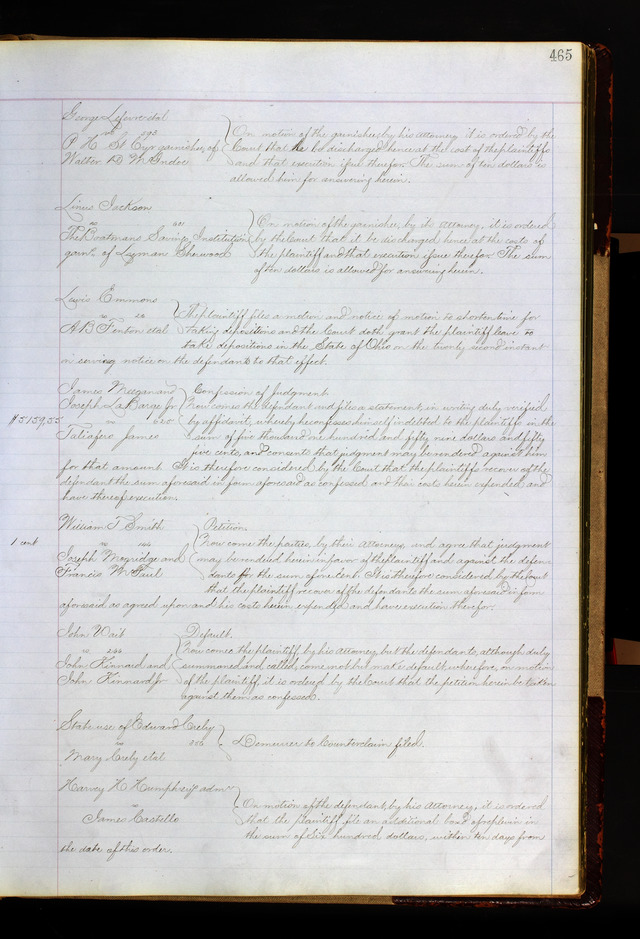 465
George Lefevre et al
vs 93
P. K. St Cyr garnishee of
Walter D McIndoe
On motion of the garnishee, by his Attorney it is ordered by the
Court that he be discharged hence at the cost of the plaintiffs
and that execution issue therefor. The sum of ten dollars is
allowed him for answering herein.
Linus Jackson
vs
The Boatmans Saving Institution
garn. of Lyman Sherwood
On motion of the garnishee, by its Attorney, it is ordered
by the Court that it be discharged hence at the costs of
the plaintiff and that execution issue therefor. The sum
of ten dollars is allowed for answering herein.
Lewis Emmons
vs
A B Fenton et al
The plaintiff files a motion and notice of motion to shorten time for
taking depositions and the Court doth grant the plaintiff leave to
take depositions in the State of Ohio on the twenty second instant
in serving notice on the defendants to that effect.
James Meegan and
Joseph LaBarge Jr
$5159,55
vs
Taliafero James
Confession of Judgment.
Now comes the defendant and files a statement, in writing duly verified
by affidavit, whereby he confesses himself indebted to the plaintiffs in the
sum of five thousand one hundred and fifty nine dollars and fifty
five cents, and consents that judgment may be rendered against him
for that amount. It is therefore considered by the Court that the plaintiffs recover of the
defendant the sum aforesaid in form aforesaid as confessed and their costs herein expended and
have thereof execution.
William T. Smith
1 cent
vs
Joseph Mogridge and
Francis W. Paul
Petition.
Now come the parties, by their Attorneys, and agree that judgment
may be rendered herein in favor of the plaintiff and against the defen-
dants for the sum of one cent. It is therefore considered by the Court
that the plaintiff recover of the defendants the sum aforesaid in form
aforesaid as agreed upon and his costs herein expended and have execution therefor.
John Wait
vs
John Kinnard and
John Kinnard Jr
Default.
Now comes the plaintiff by his Attorney, but the defendants, although duly
summoned and called, come not but make default, wherefore, on motion
of the plaintiff it is ordered by the Court that the petition herein be taken
against them as confessed.
State use of Edward Crely
vs
Mary Crely et al
Demurrer to Counterclaim filed.
Harvey H. Humphrey admr
vs
James Castello
On motion of the defendant, by his Attorney, it is ordered
that the plaintiff file an additional bond of replevin in
the sum of Six hundred dollars, within ten days from
the date of this order.